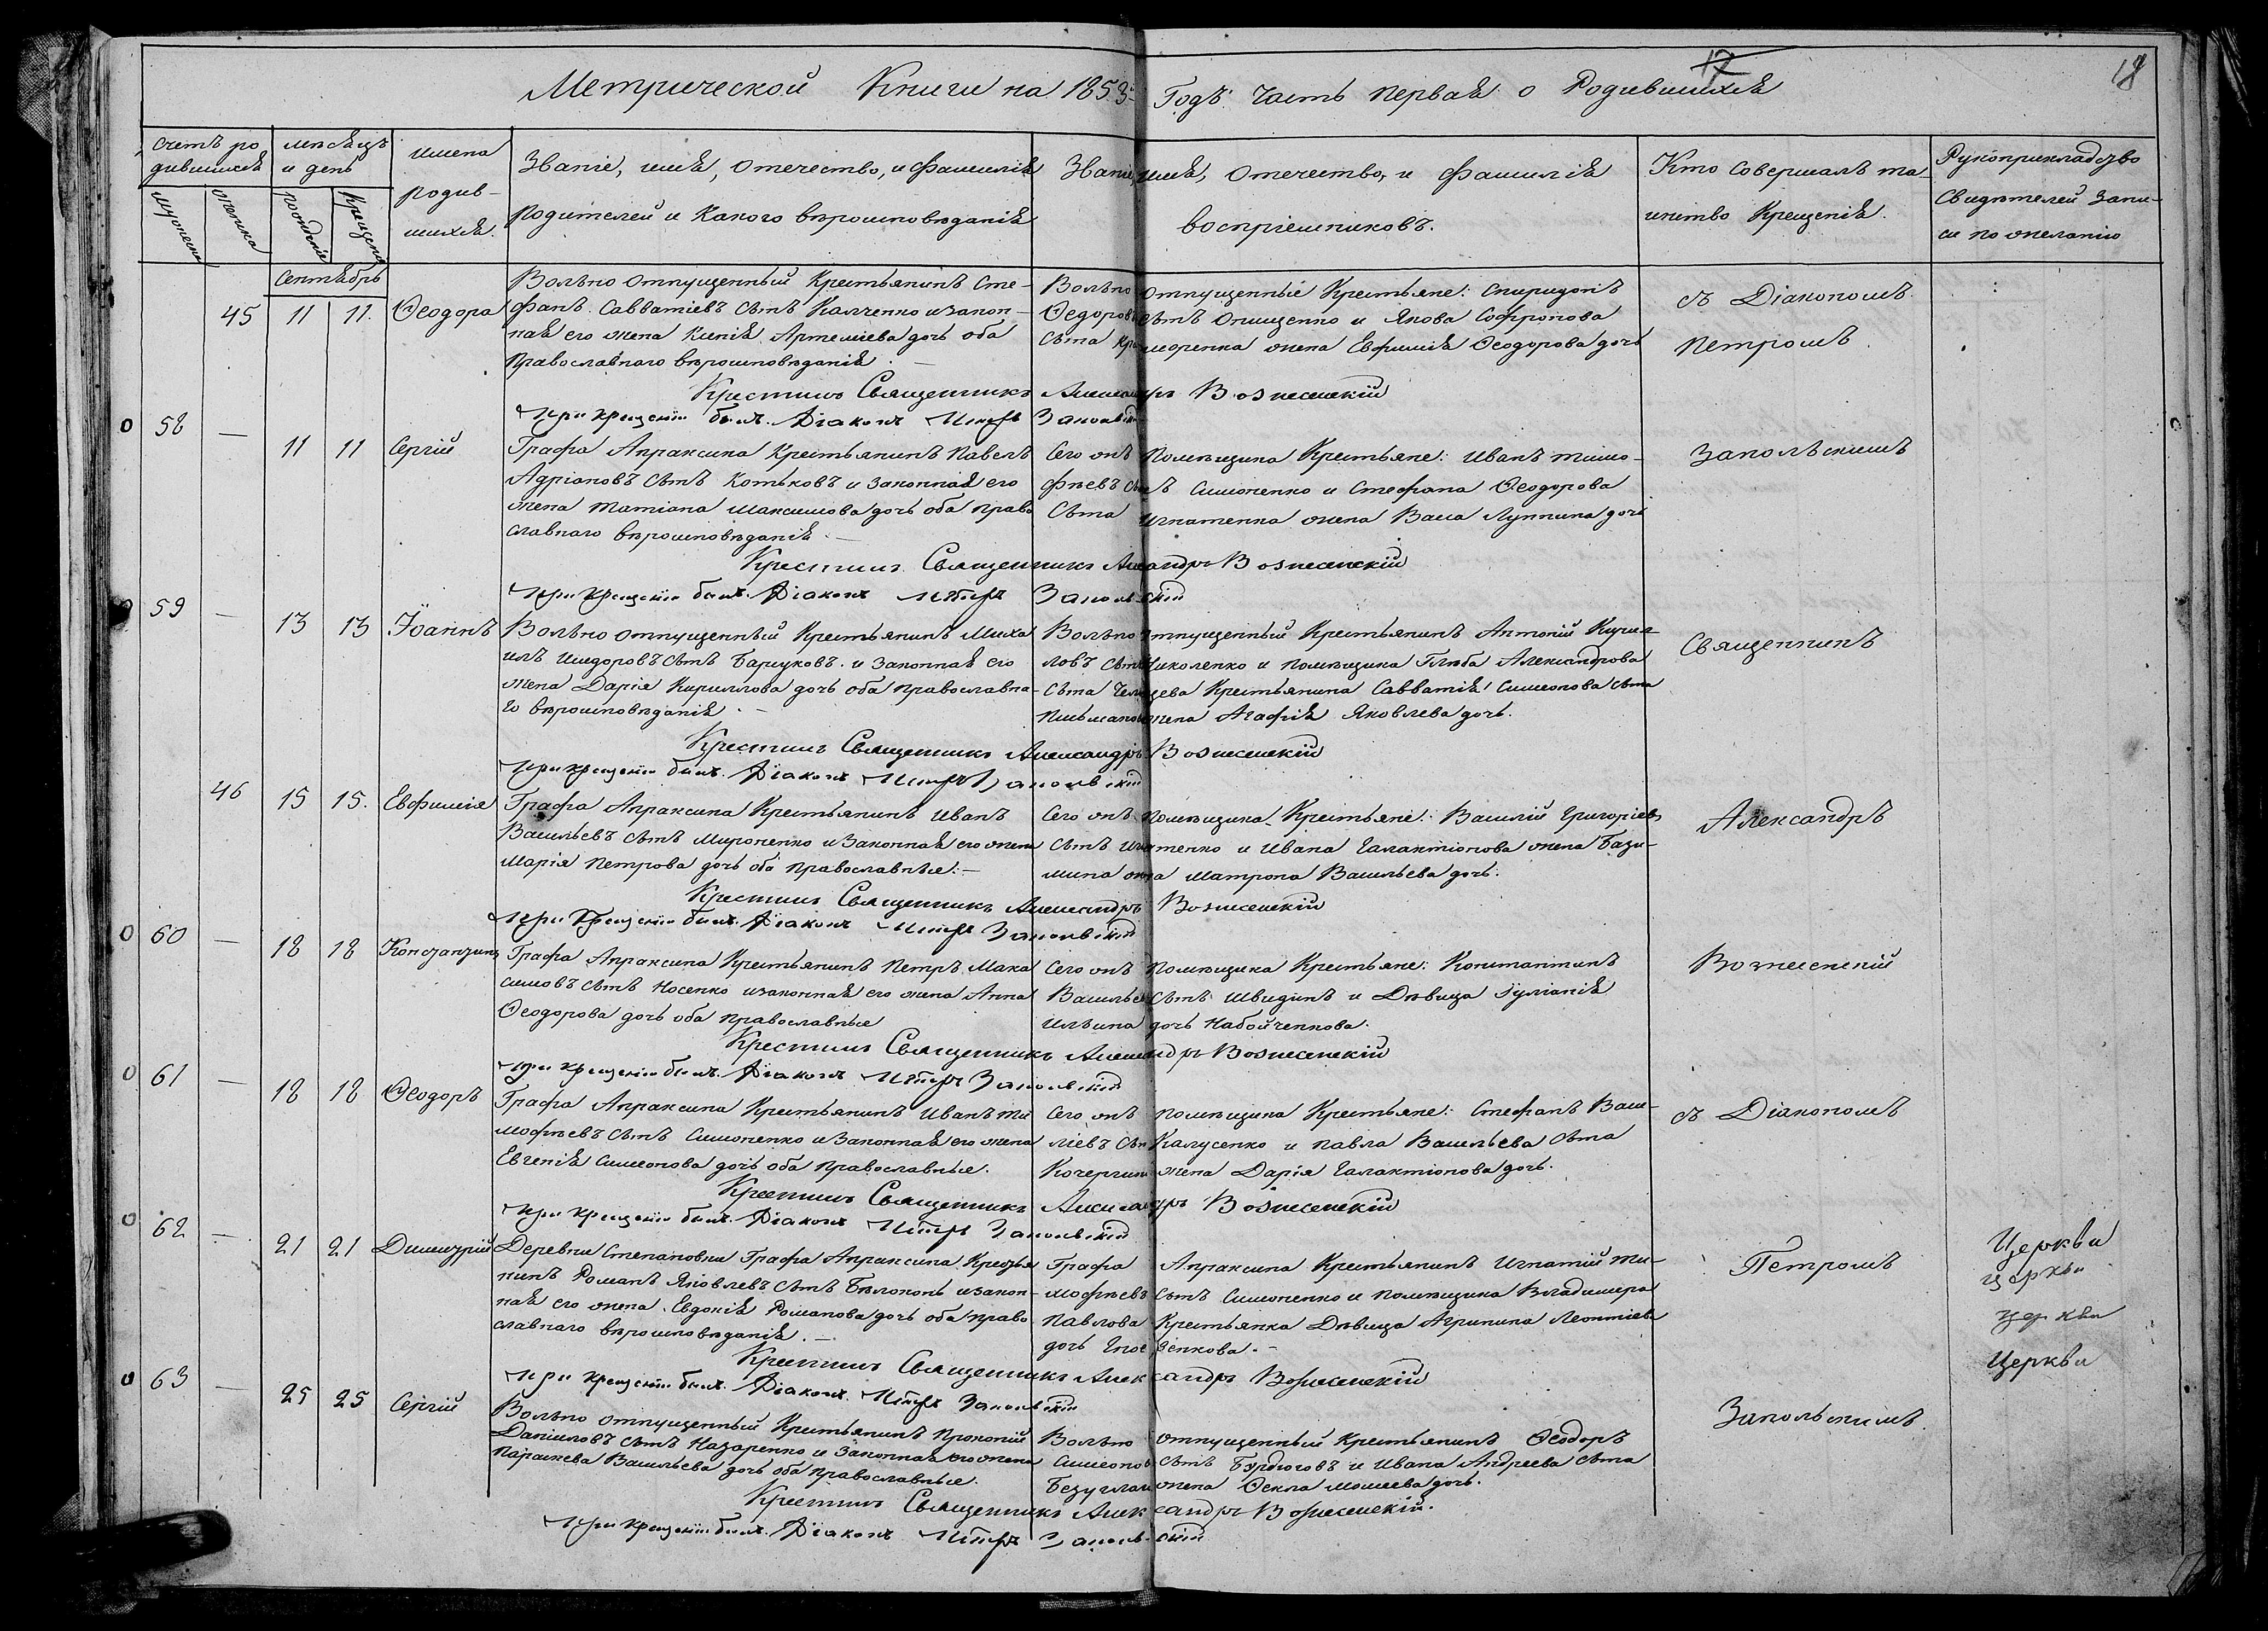 17
18
Метрической Книги на 1853й Годъ Часть Первая о Родившихся
Счетъ ро
дившихся
Мужеска
Женска
месяцъ
и день
рожденія
крещенія
имена
родив-
шихся.
Званіе, имя, отечество, и фамилія
Родителей и Какого вѣроисповѣданія
Званіе, имя, отечество, и фамилія
воспріемниковъ.
Кто Совершалъ та-
инство Крещенія.
Рукоприкладство
Свидѣтелей Запи-
си по желанію
Сентябрь
45 11 11. Ѳеодора
Вольно отпущенный Крестьянинъ Сте-
фанъ Савватіевъ Сынъ Калченко и закон-
ная его жена Ксенія Артеміева дочь оба
Православнаго вѣроисповѣданія
Вольно отпущенные Крестьяне: Спиридонъ
Ѳедоровъ Сынъ Онищенко и Якова Софронова
Сына жена Евфимія Ѳеодорова дочь
съ Діакономъ
Петромъ
Крестилъ Священникъ Александръ Вознесенскій
При крещеніи былъ Діаконъ Петръ Запольскій
58 — 11 11 Сергій
Графа Апраксина Крестьянинъ Павелъ
Адріановъ Сынъ Котьковъ и Законная его
жена Татіана Максимова дочь оба право
славнаго вѣроисповѣданія —
Сего жъ Помѣщика Крестьяне: Иванъ Тимо-
фѣевъ Сынъ Симоненко и Стефана Ѳеодорова
Сына Игнатенка жена Васса Луппина дочь
Запольскимъ
Крестилъ Священникъ Александръ Вознесенскій
При крещеніи былъ Діаконъ Петръ Запольскій
59 — 13 13 Іоаннъ
Вольно отпущенный Крестьянинъ Миха
илъ Исидоровъ Сынъ Барсуковъ и Законная его
жена Дарія Кириллова дочь оба православна-
го вѣроисповѣданія —
Вольно отпущенный Крестьянинъ Антоній Кирил-
ловъ Сынъ Николенко и помѣщика Глѣба Александрова
Сына Крестьянина Савватія Симеонова Сына
жена Агафія Яковлева дочь.
Священникъ
Крестилъ Священникъ Александръ Вознесенскій
При крещеніи былъ Діаконъ Петръ Запольскій
46 15 15. Евфимія
Графа Апраксина Крестьянинъ Иванъ
Васильевъ Сынъ Мироненко и Законная его жена
Марія Петрова дочь оба православные: —
Сего жъ Помѣщика Крестьяне: Василій Григоріевъ
Сынъ Игнатенко и Ивана Галактіонова жена Бази-
мина жена Матрона Васильева дочь.
Александръ
Крестилъ Священникъ Александръ Вознесенскій
При крещеніи былъ Діаконъ Петръ Запольскій
60 — 18 18 Константинъ
Графа Апраксина Крестьянинъ Петръ Мака
симовъ Сынъ Носенко и законная его жена Анна
Ѳеодорова дочь оба православные
Сего жъ Помѣщика Крестьяне: Константинъ
Васильевъ Сынъ Швидинъ и Дѣвица Іуліанія
Ильина дочь Набойченкова.
Вознесенскій
Крестилъ Священникъ Александръ Вознесенскій
При крещеніи былъ Діаконъ Петръ Запольскій
61 — 18 18 Ѳеодоръ
Графа Апраксина Крестьянинъ Иванъ Ти
мофѣевъ Сынъ Симоненко и Законная его жена
Евгенія Симеонова дочь оба православные.
Сего жъ помѣщика Крестьяне: Стефанъ Васи-
ліевъ Сынъ Калусенко и Павла Васильева Сына
Кочергина жена Дарія Галактіонова дочь.
съ Діакономъ
Крестилъ Священникъ Александръ Вознесенскій
При крещеніи былъ Діаконъ Петръ Запольскій
62 — 21 21 Димитрій
Деревни Степановки Графа Апраксина Крестья
нинъ Романъ Яковлевъ Сынъ Бѣлоконь и закон-
ная его жена Евдокія Романова дочь оба право
славнаго вѣроисповѣданія. —
Графа Апраксина Крестьянинъ Игнатій Ти-
мофѣевъ Сынъ Симоненко и помѣщика Владимера
Павлова Крестьянка Дѣвица Агрипина Леонтіева
дочь
Петромъ
Церкви
церкви
церкви
Церкви
Крестилъ Священникъ Александръ Вознесенскій
При крещеніи былъ Діаконъ Петръ Запольскій
63 — 25 25 Сергій
Вольно отпущенный Крестьянинъ Прокопій
Даниловъ Сынъ Назаренко и Законная его жена
Параскева Васильева дочь оба православные.
Вольно отпущенный Крестьянинъ Ѳеодоръ
Симеоновъ Сынъ Бурдюговъ и Ивана Андреева Сына
жена Ѳекла Моисеева дочь.
Запольскимъ
Крестилъ Священникъ Александръ Вознесенскій.
При крещеніи былъ Діаконъ Петръ Запольскій